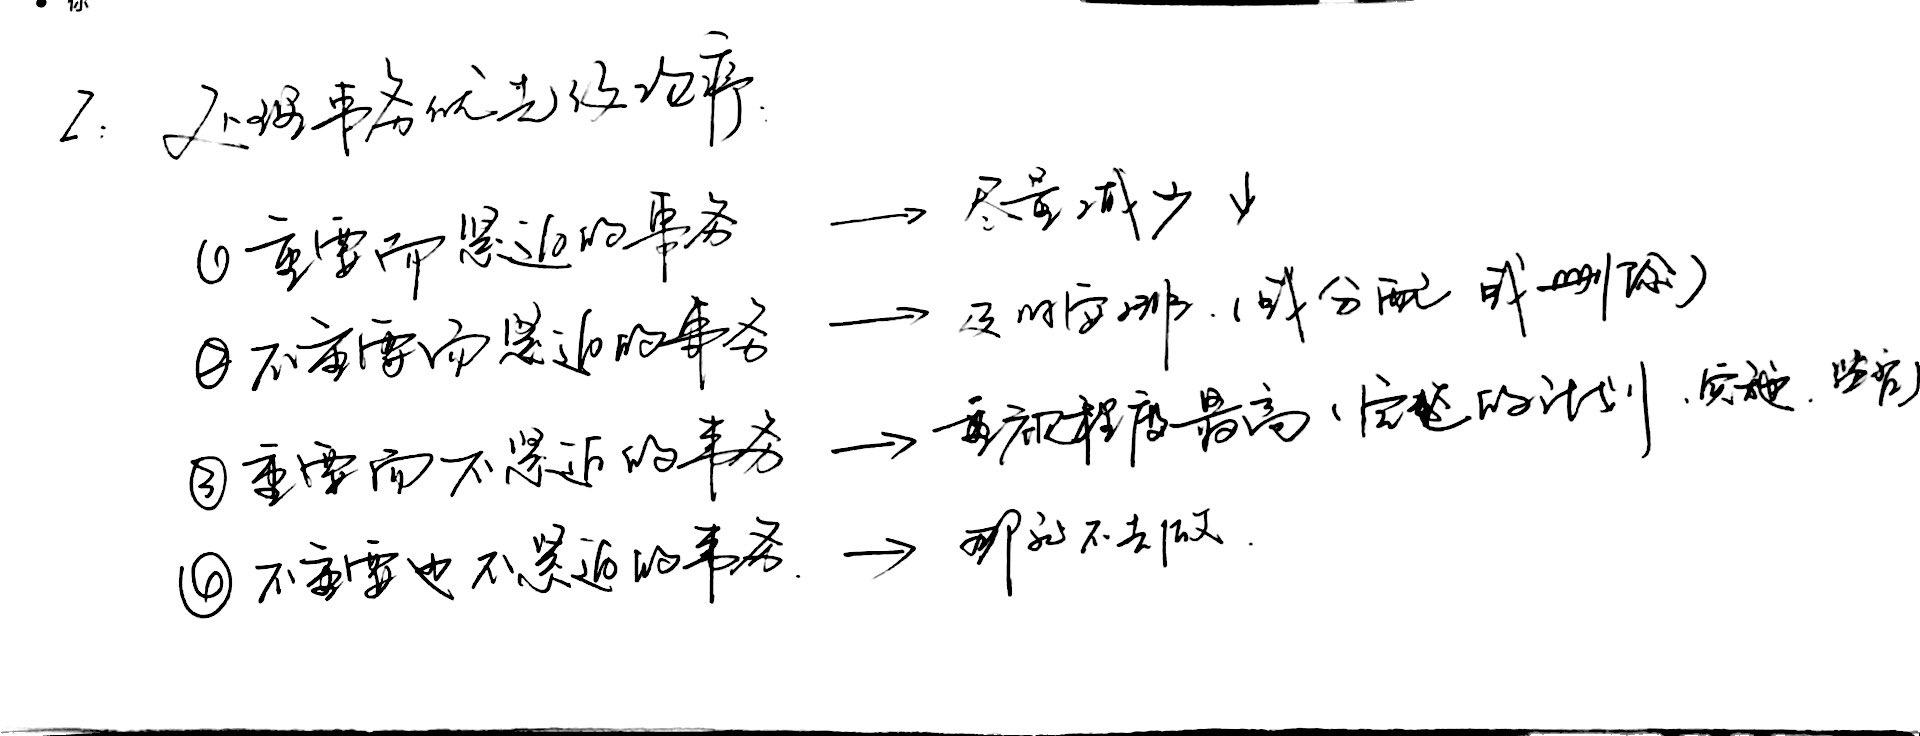 你
2: 处理事务优先级次序:
① 重要而紧迫的事务 → 尽量减少 ↓
② 不重要而紧迫的事务 → 及时安排.(或分配 或删除)
③ 重要而不紧迫的事务 → 重视程度最高,(完整的计划.实施.监督)
④ 不重要也不紧迫的事务. → 那就不去做.